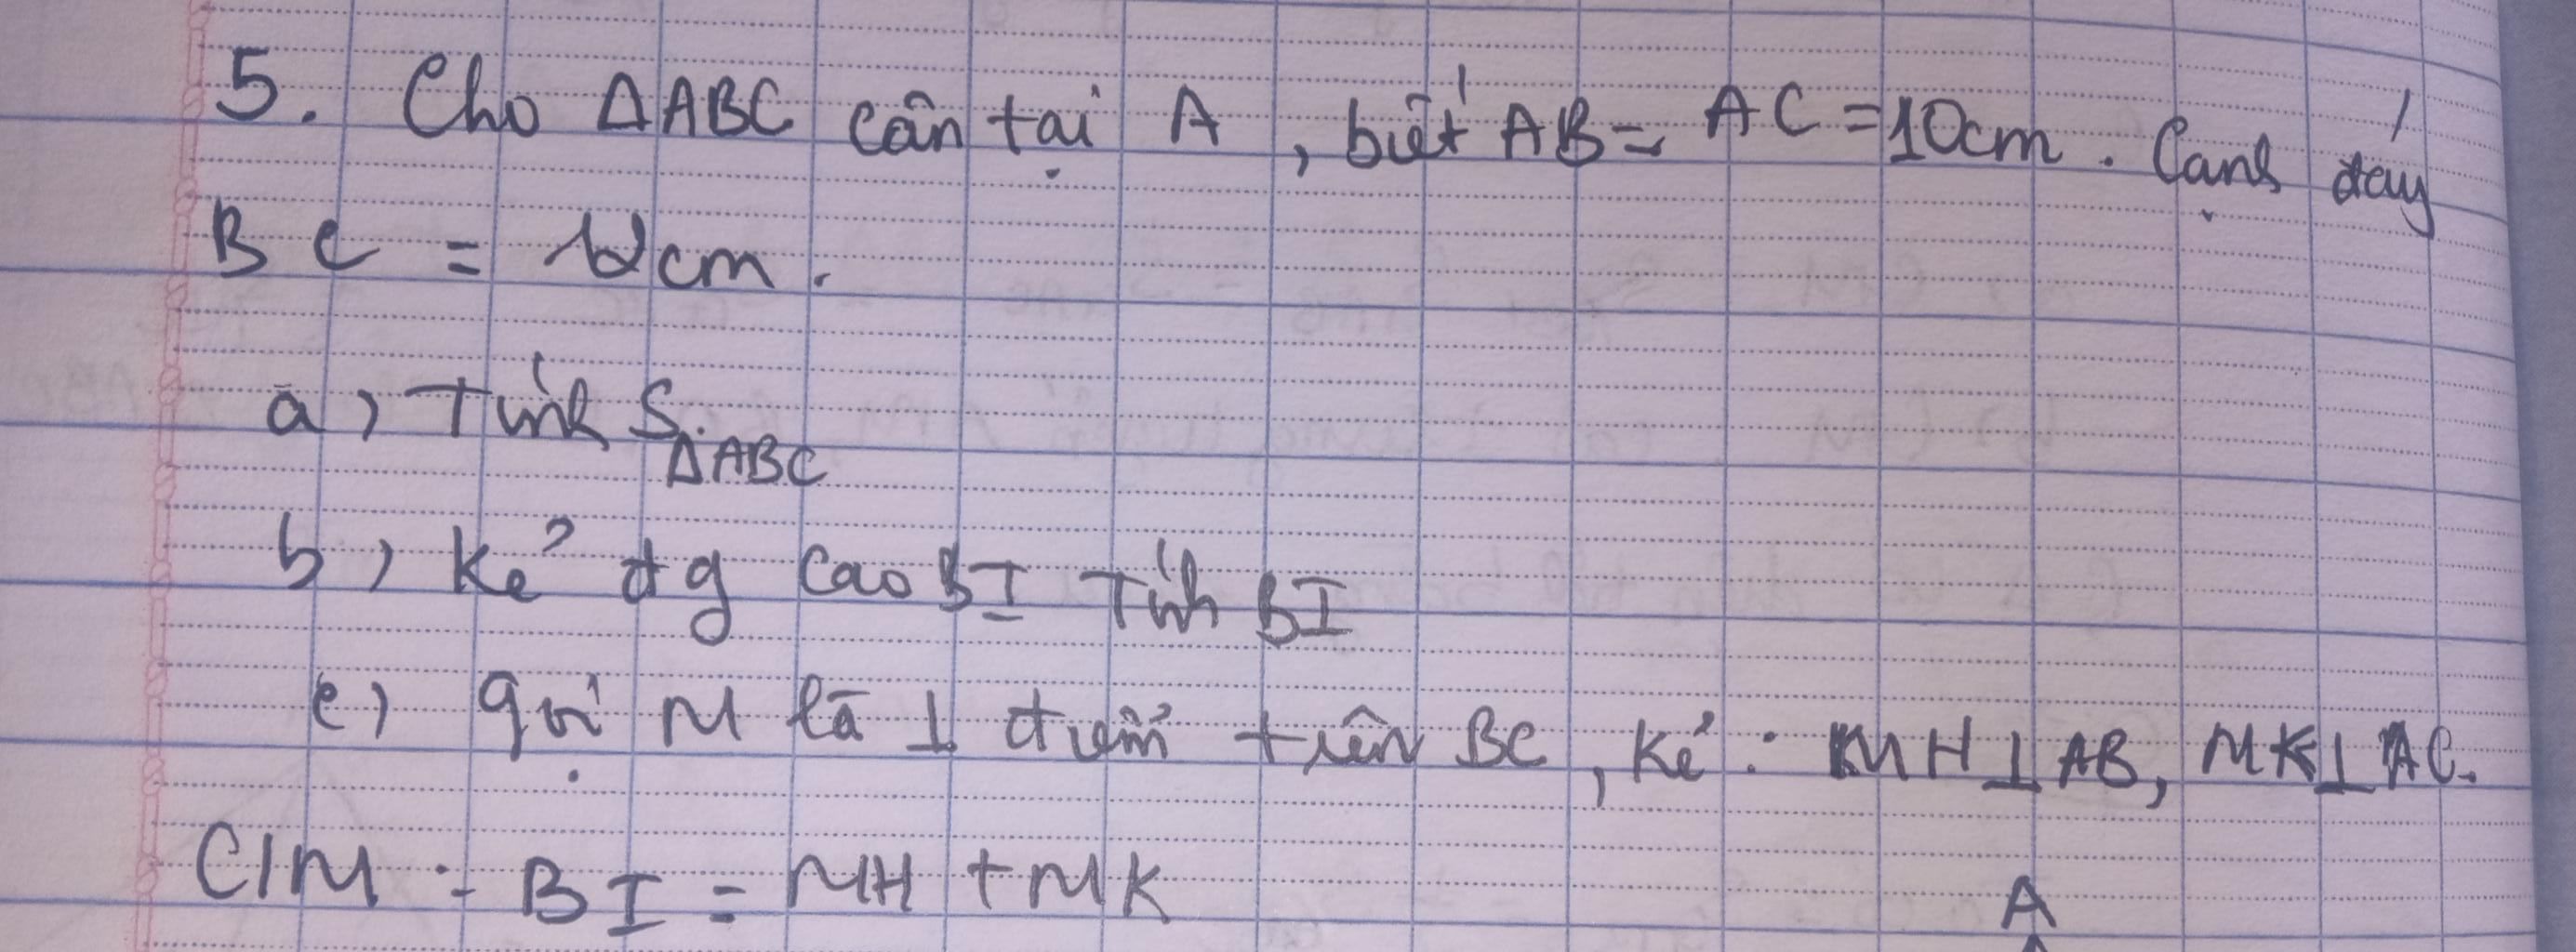 5. Cho ΔABC cân tại A, biết AB = AC = 10cm. Cạnh đáy
BC = 12cm.
a) Tính S ΔABC
b) Kẻ đg cao BI Tính BI
c) gọi M là 1 điểm trên BC, kẻ: MH⊥AB, MK⊥AC.
C/M: BI = MH + MK
A